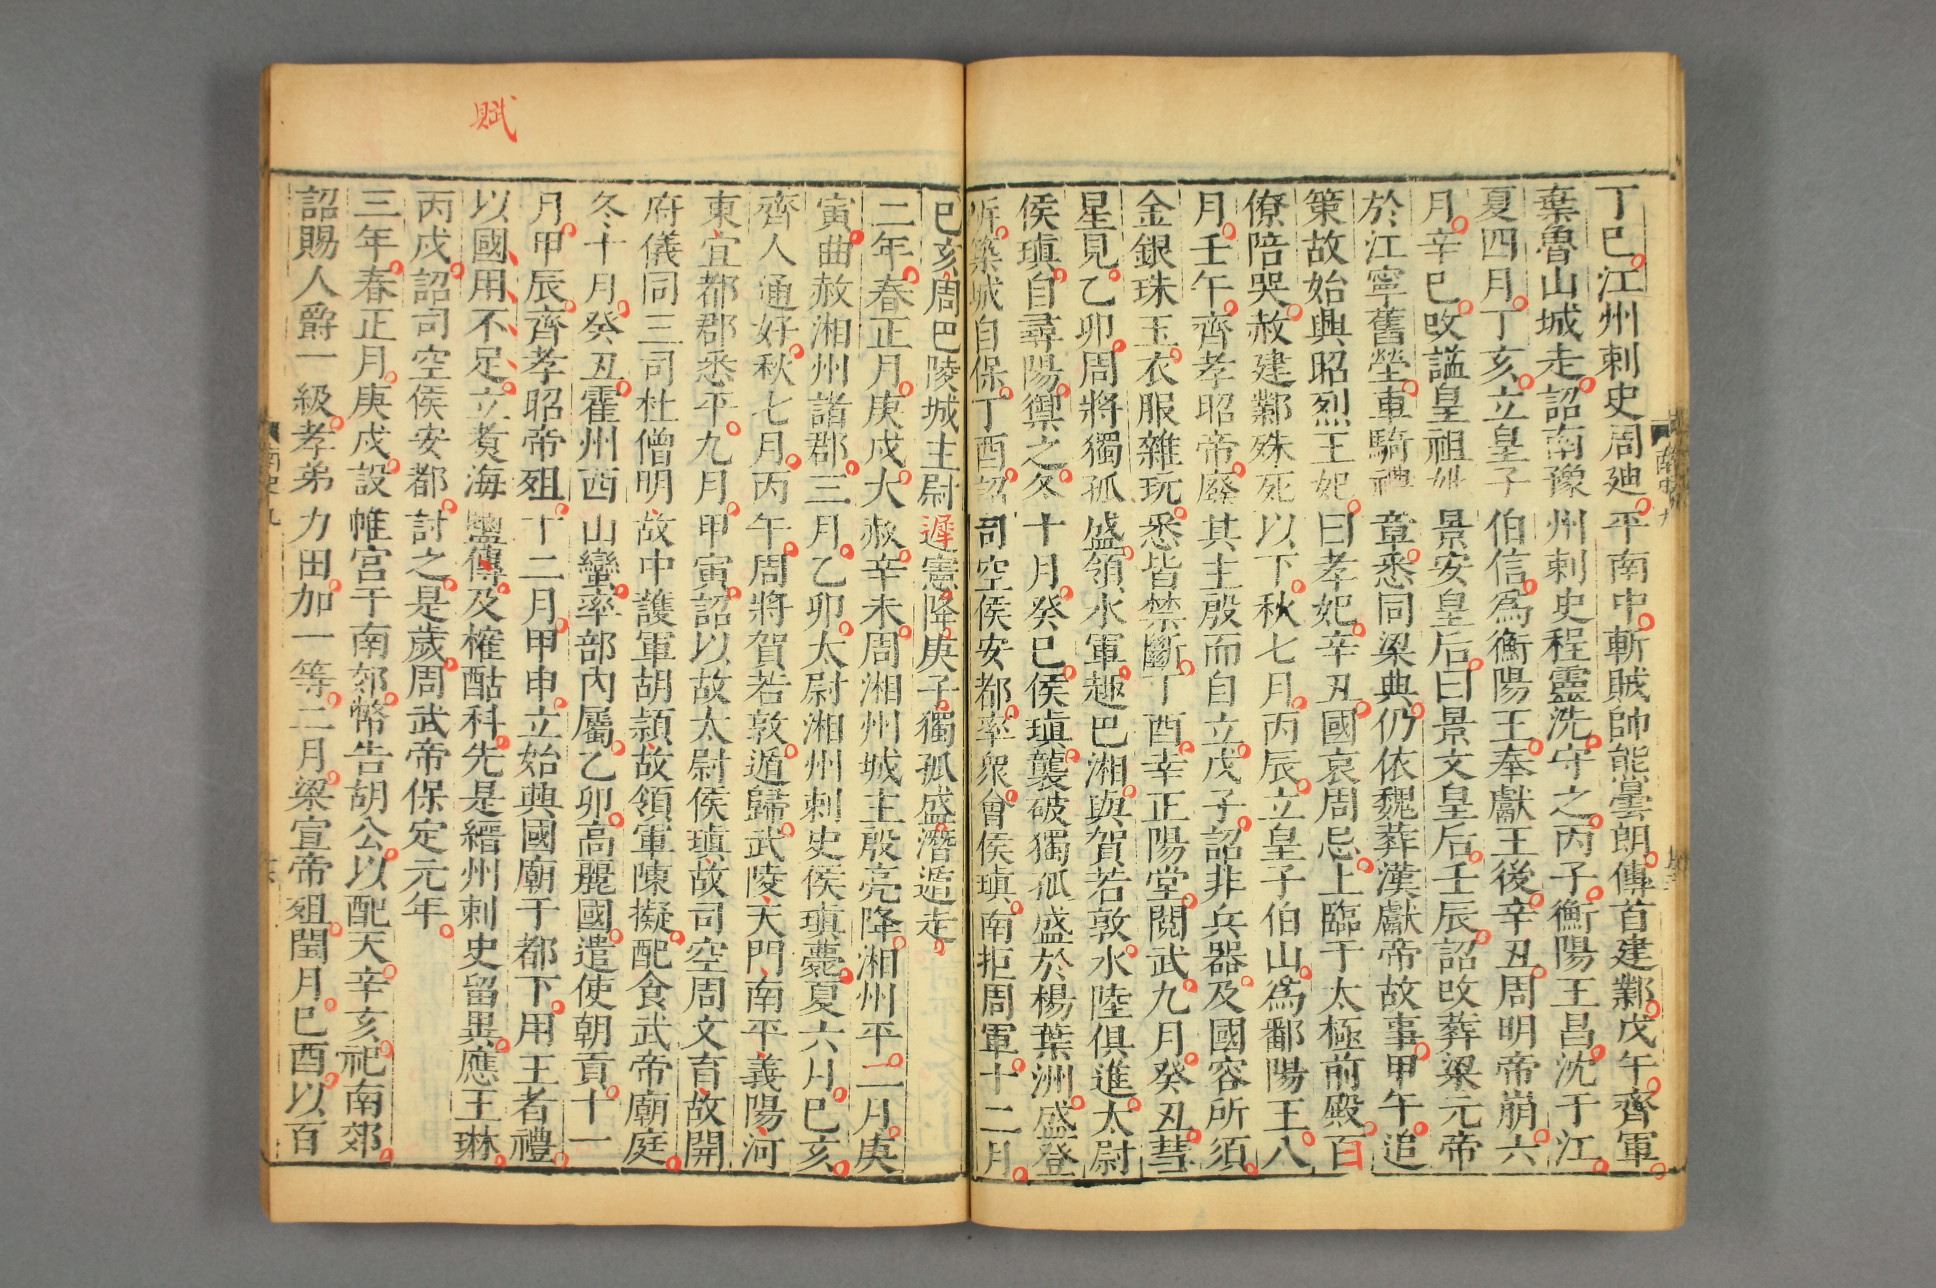 丁巳江州刺史周迪平南中斬賊帥熊曇朗傳首建鄴戊午齊軍
棄魯山城走詔南豫州刺史程靈洗守之丙子衡陽王昌沈于江
夏四月丁亥立皇子伯信為衡陽王奉獻王後辛丑周明帝崩六
月辛巳改諡皇祖妣景安皇后曰景文皇后壬辰詔改葬梁元帝
於江寧舊塋車騎禮章悉同梁典仍依魏葬漢獻帝故事甲午追
策故始興昭烈王妃曰孝妃辛丑國哀周忌上臨于太極前殿百
僚陪哭赦建鄴殊死以下秋七月丙辰立皇子伯山為鄱陽王八
月壬午齊孝昭帝廢其主殷而自立戊子詔非兵器及國容所須
金銀珠玉衣服雜玩悉皆禁斷丁酉幸正陽堂閱武九月癸丑彗
星見乙卯周將獨孤盛領水軍趣巴湘與賀若敦水陸俱進太尉
侯瑱自尋陽禦之冬十月癸巳侯瑱襲破獨孤盛於楊葉洲盛登
岸築城自保丁酉詔司空侯安都率衆會侯瑱南拒周軍十二月
巳亥周巴陵城主尉遲憲降庚子獨孤盛潛遁走
二年春正月庚戌大赦辛未周湘州城主殷亮降湘州平二月庚
寅曲赦湘州諸郡三月乙卯太尉湘州刺史侯瑱薨夏六月巳亥
齊人通好秋七月丙午周將賀若敦遁歸武陵天門南平義陽河
東宜都郡悉平九月甲寅詔以故太尉侯瑱故司空周文育故開
府儀同三司杜僧明故中護軍胡頴故領軍陳擬配食武帝廟庭
冬十月癸丑霍州西山蠻率部內屬乙卯高麗國遣使朝貢十一
月甲辰齊孝昭帝殂十二月甲申立始興國廟于都下用王者禮
以國用不足立煑海鹽傳及榷酤科先是縉州刺史留異應王琳
丙戌詔司空侯安都討之是歲周武帝保定元年
三年春正月庚戌設帷宮于南郊幣告胡公以配天辛亥祀南郊
詔賜人爵一級孝弟力田加一等二月梁宣帝殂閏月巳酉以百
賦
南史九